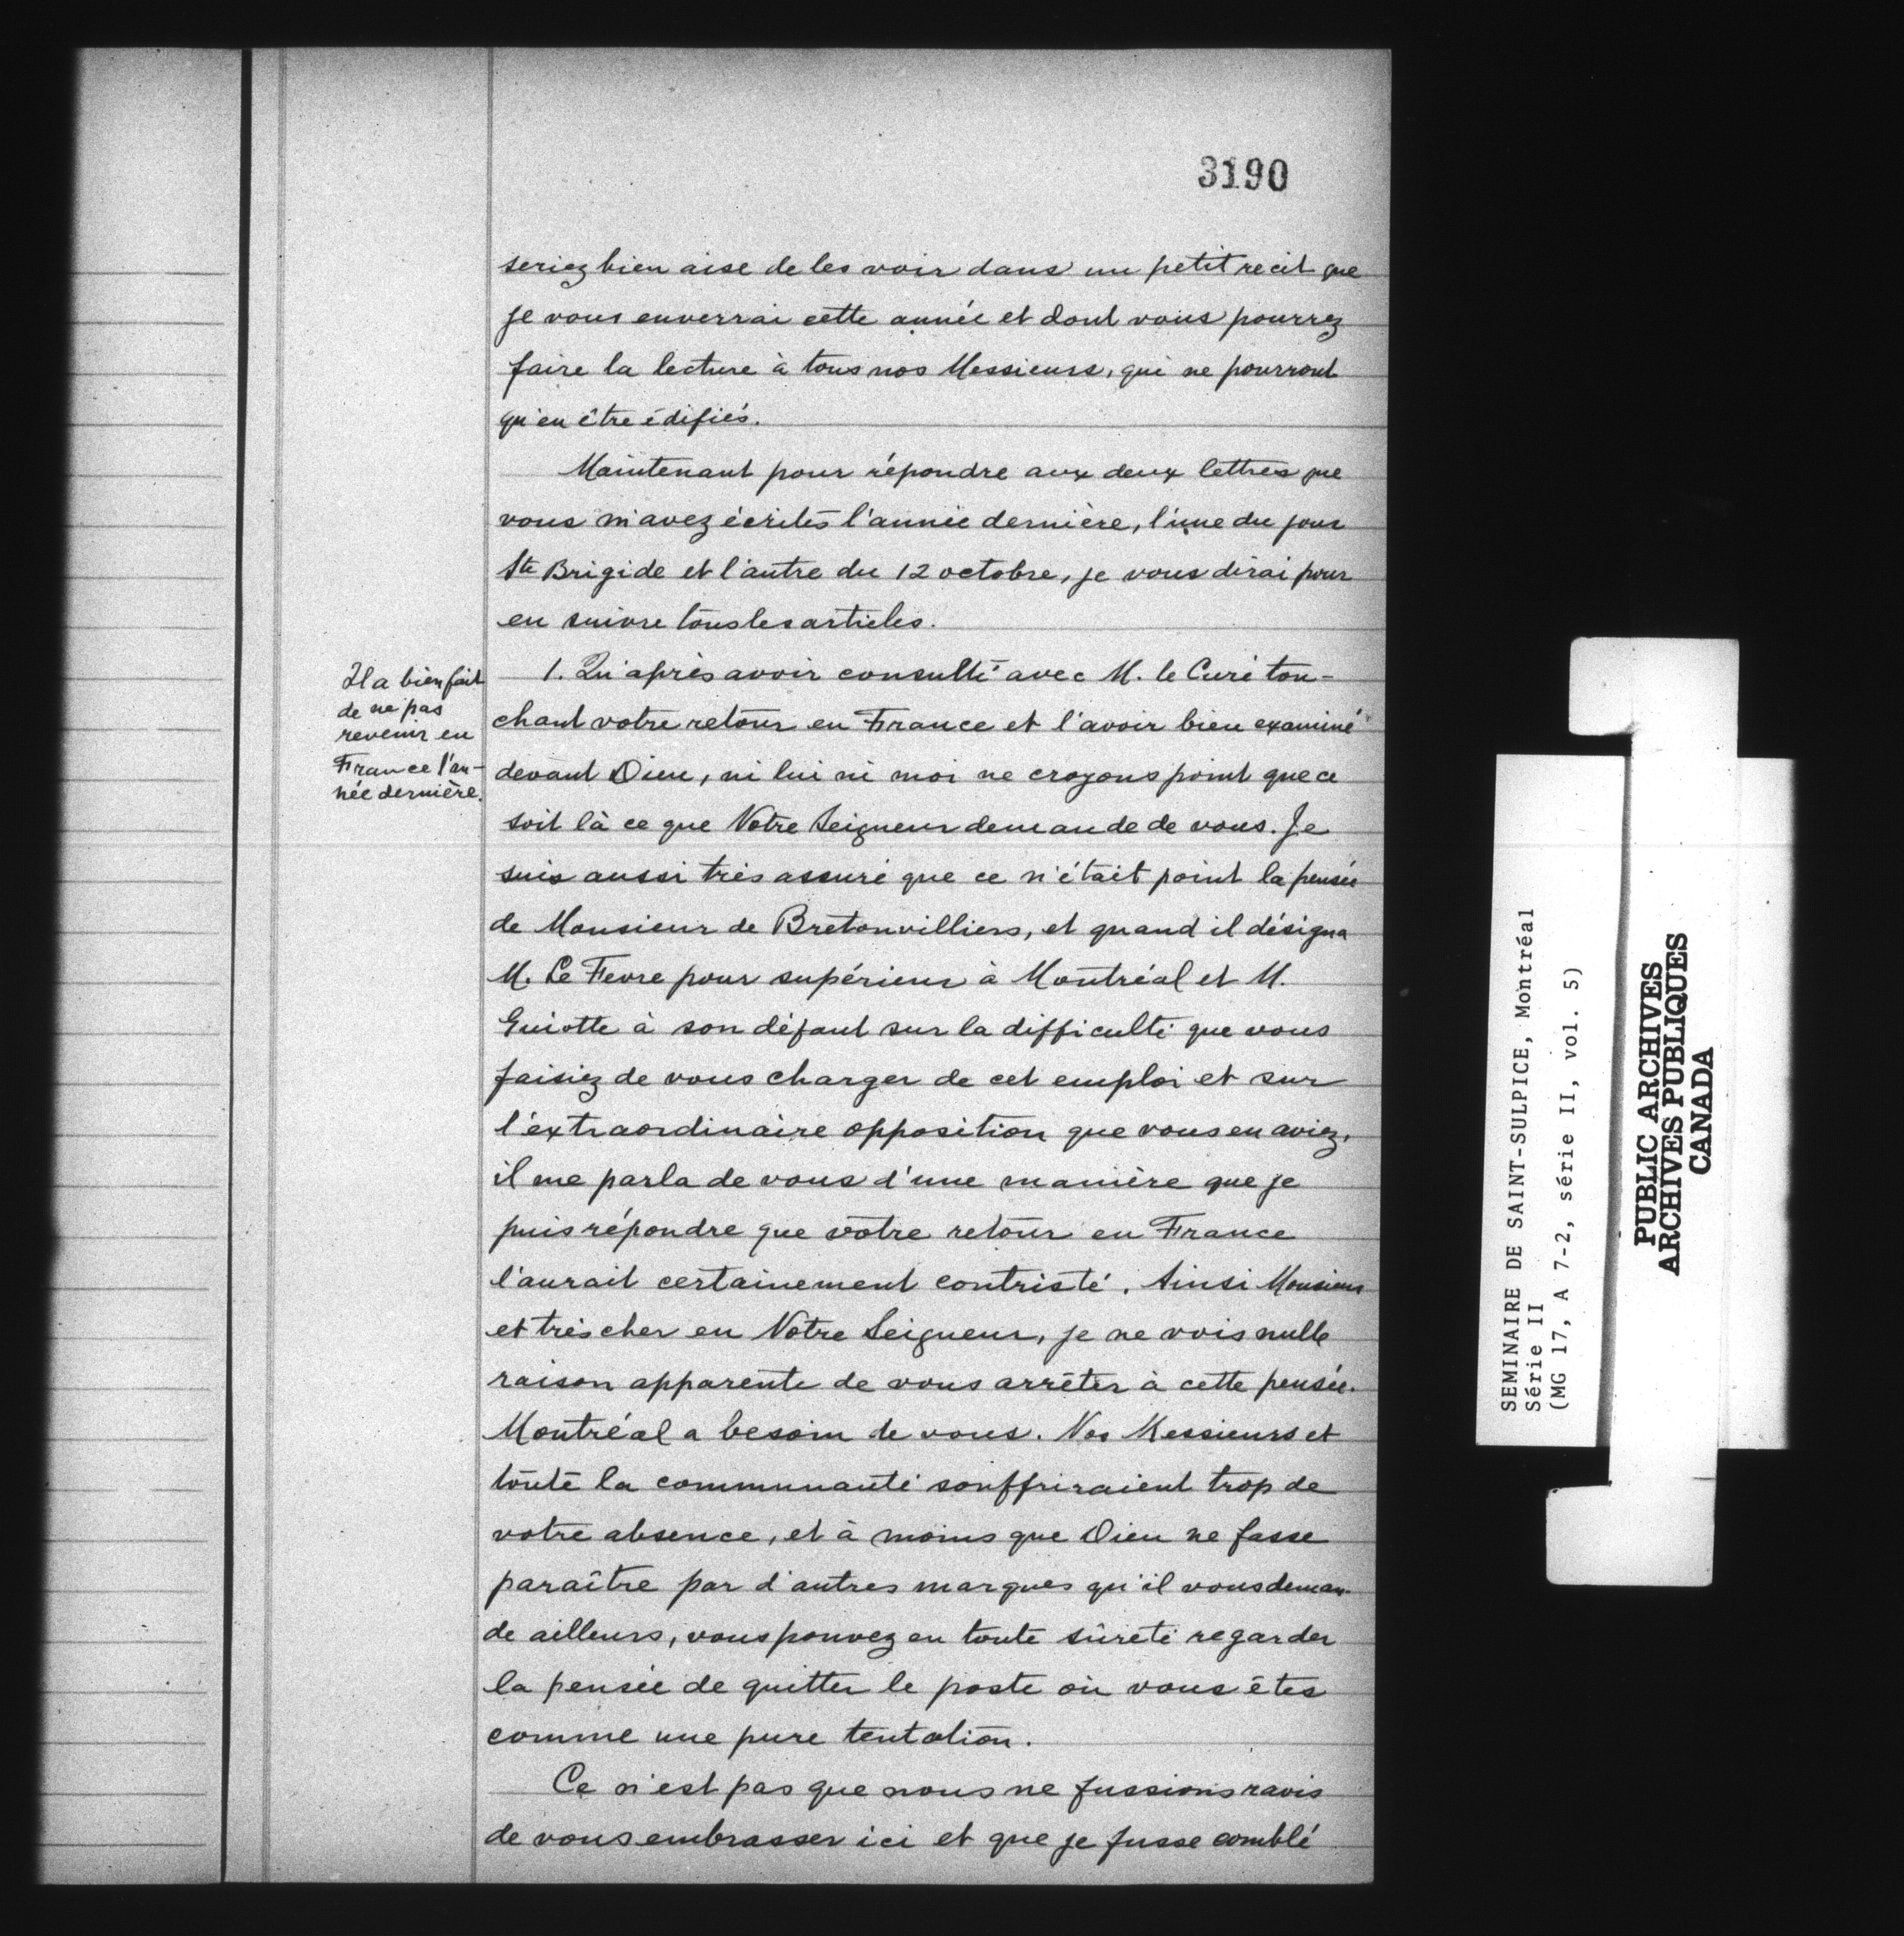 3190
seriez bien aise de les voir dans un petit recit que
je vous enverrai cette année et dont vous pourrez
faire la lecture à tous nos Messieurs, qui ne pourront
qu'en être édifiés.
Maintenant pour répondre aux deux lettres que
vous m'avez écrites l'année dernière, l'une du jour
Ste Brigide et l'autre du 12 octobre, je vous dirai pour
en suivre tous les articles.
1. Qu'après avoir consulté avec M. le Curé tou-
chant votre retour en France et l'avoir bien examiné
devant Dieu, ni lui ni moi ne croyons point que ce
soit là ce que Notre Seigneur demande de vous. Je
suis aussi très assuré que ce n'était point la pensée
de Monsieur de Bretonvilliers, et quand il désigna
M. Le Fevre pour supérieur à Montréal et M.
Guiotte à son défaut sur la difficulté que vous
faisiez de vous charger de cet emploi et sur
l'extraordinaire opposition que vous en aviez,
il me parla de vous d'une manière que je
puis répondre que votre retour en France
l'aurait certainement contristé. Ainsi Monsieur
et très cher en Notre Seigneur, je ne vois nulle
raison apparente de vous arrêter à cette pensée.
Montréal a besoin de vous. Nos Messieurs et
toute la communauté souffriraient trop de
votre absence, et à moins que Dieu ne fasse
paraître par d'autres marques qu'il vous deman-
de ailleurs, vous pouvez en toute sûreté regarder
la pensée de quitter le poste où vous êtes
comme une pure tentation.
Ce n'est pas que nous ne fussions ravis
de vous embrasser ici et que je fusse comblé
Il a bien fait
de ne pas
revenir en
France l'an-
née dernière.
SEMINAIRE DE SAINT-SULPICE, Montréal
Série II
(MG 17, A 7-2, série II, vol. 5)
PUBLIC ARCHIVES
ARCHIVES PUBLIQUES
CANADA